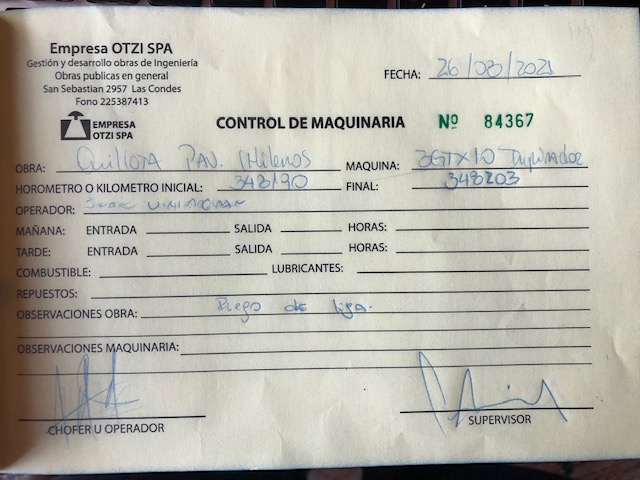 Empresa OTZI SPA
Gestión y desarrollo obras de Ingeniería
Obras publicas en general
San Sebastian 2957 Las Condes
Fono 225387413
FECHA: 26/08/2021
EMPRESA
OTZI SPA
CONTROL DE MAQUINARIA Nº 84367
OBRA: PAV. MAQUINA:
HOROMETRO O KILOMETRO INICIAL: 348190 FINAL: 348203
OPERADOR:
MAÑANA: ENTRADA SALIDA HORAS:
TARDE: ENTRADA SALIDA HORAS:
COMBUSTIBLE: LUBRICANTES:
REPUESTOS:
OBSERVACIONES OBRA: Riego de liga.
OBSERVACIONES MAQUINARIA:
CHOFER U OPERADOR SUPERVISOR